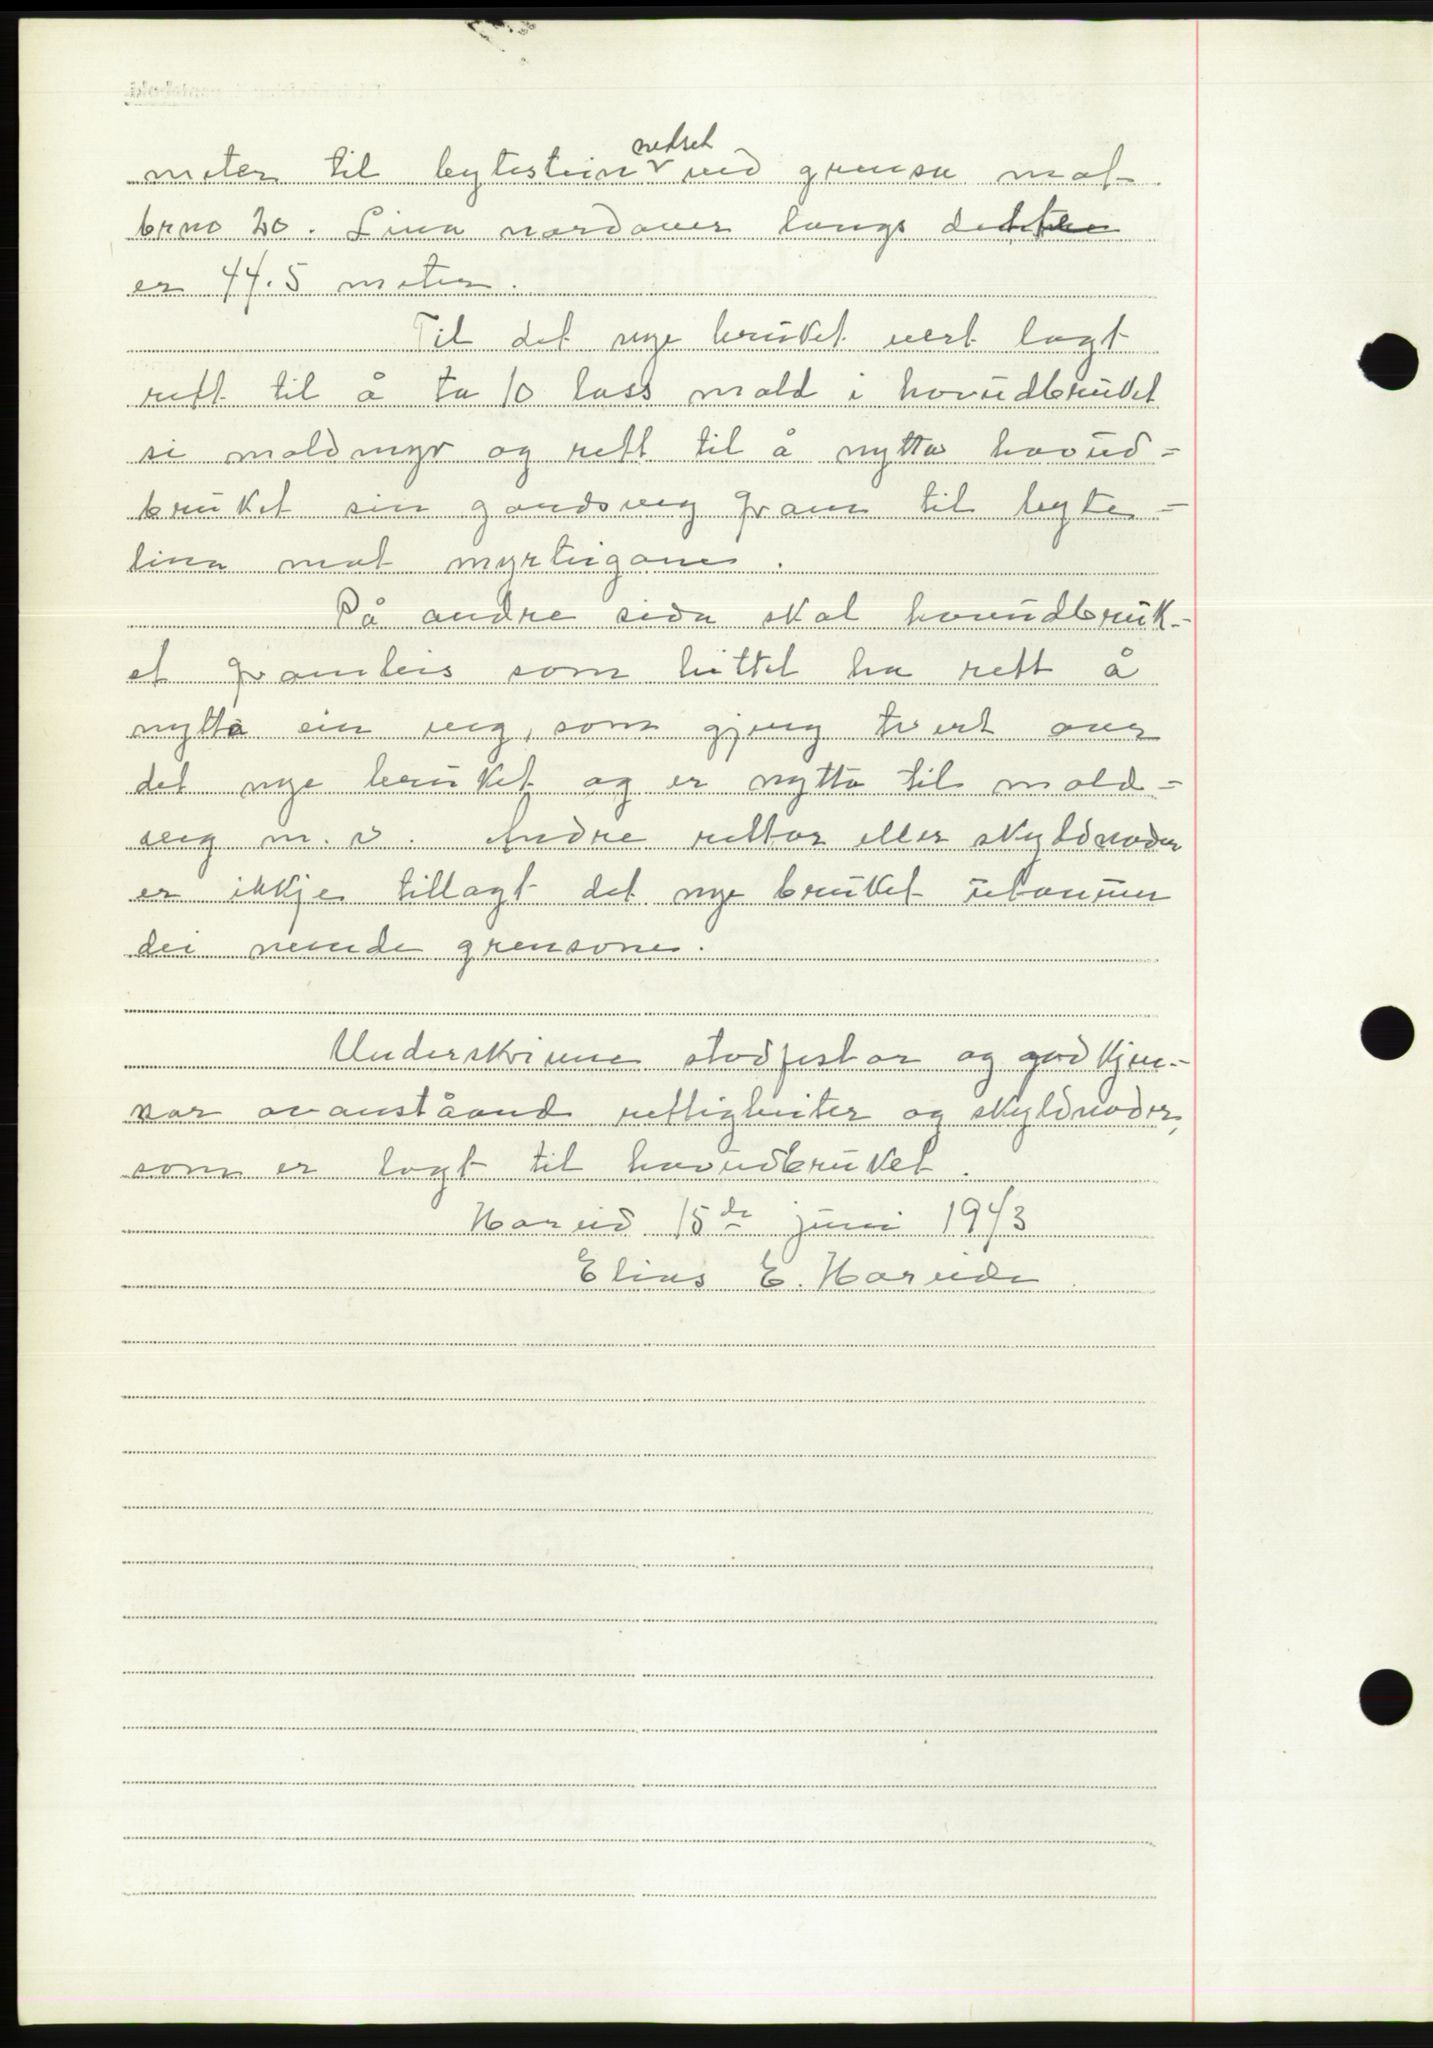 meter til bytestein nedset ved grensa mot
brno 20. Lina nordover langs dette
er 44.5 meter.
Til det nye bruket vert lagt
rett til å ta 10 lass mold i hovudbruket
si moldmyr og rett til å nytta hovud=
bruket sin gardsveg fram til byte=
lina mot myrteigane.
På andre sida skal hovudbruk-
et framleis som hittil ha rett å
nytta ein veg, som gjeng tvert over
det nye bruket og er nytta til mold=
veg m.v. Andre rettar eller skyldnader
er ikkje tillagt det nye bruket utanum
dei nemde grensone.
Underskrivne stadfestar og godkjen-
nar ovanståand rettigheiter og skyldnader,
som er lagt til hovudbruket.
Hareid 15de juni 1943
Elias E. Hareide